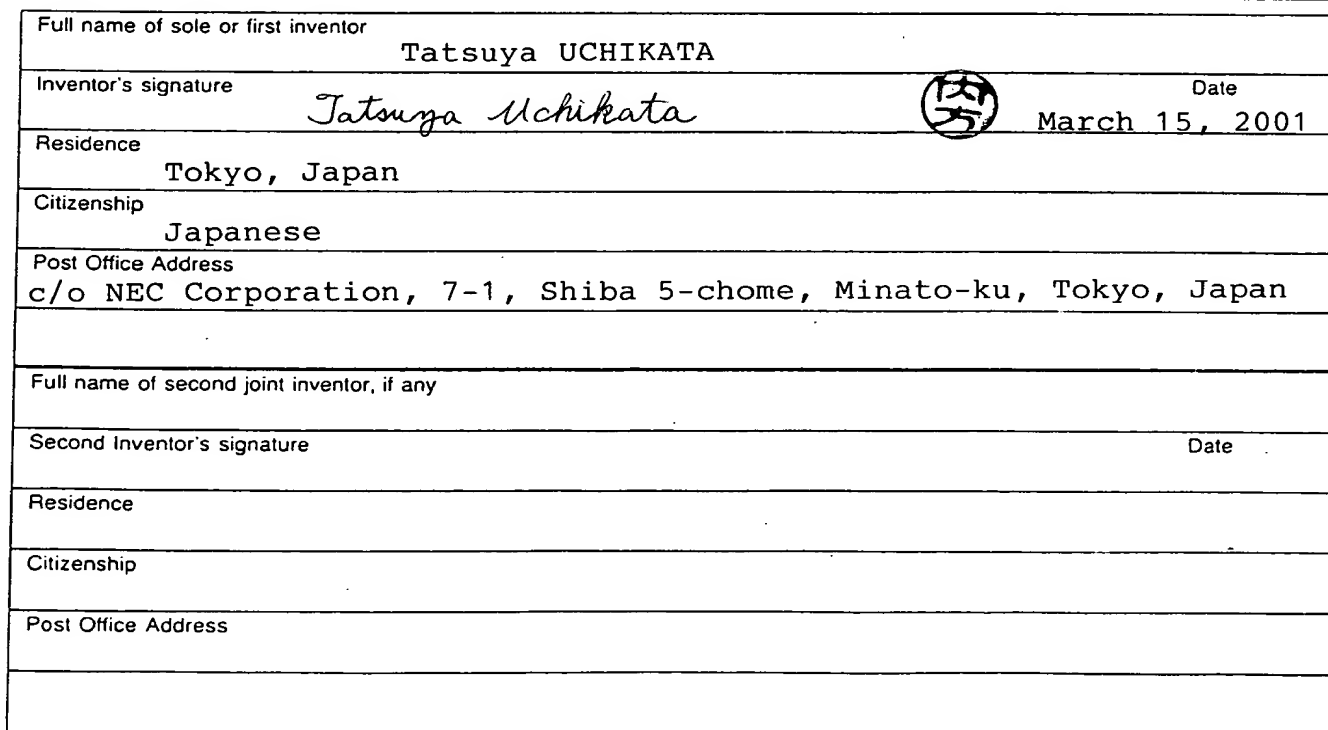 Full name of sole or first inventor
Tatsuya UCHIKATA
Inventor's signature
Tatsuya Uchikata
内方
Date
March 15, 2001
Residence
Tokyo, Japan
Citizenship
Japanese
Post Office Address
c/o NEC Corporation, 7-1, Shiba 5-chome, Minato-ku, Tokyo, Japan
Full name of second joint inventor, if any
Second Inventor's signature
Date
Residence
Citizenship
Post Office Address